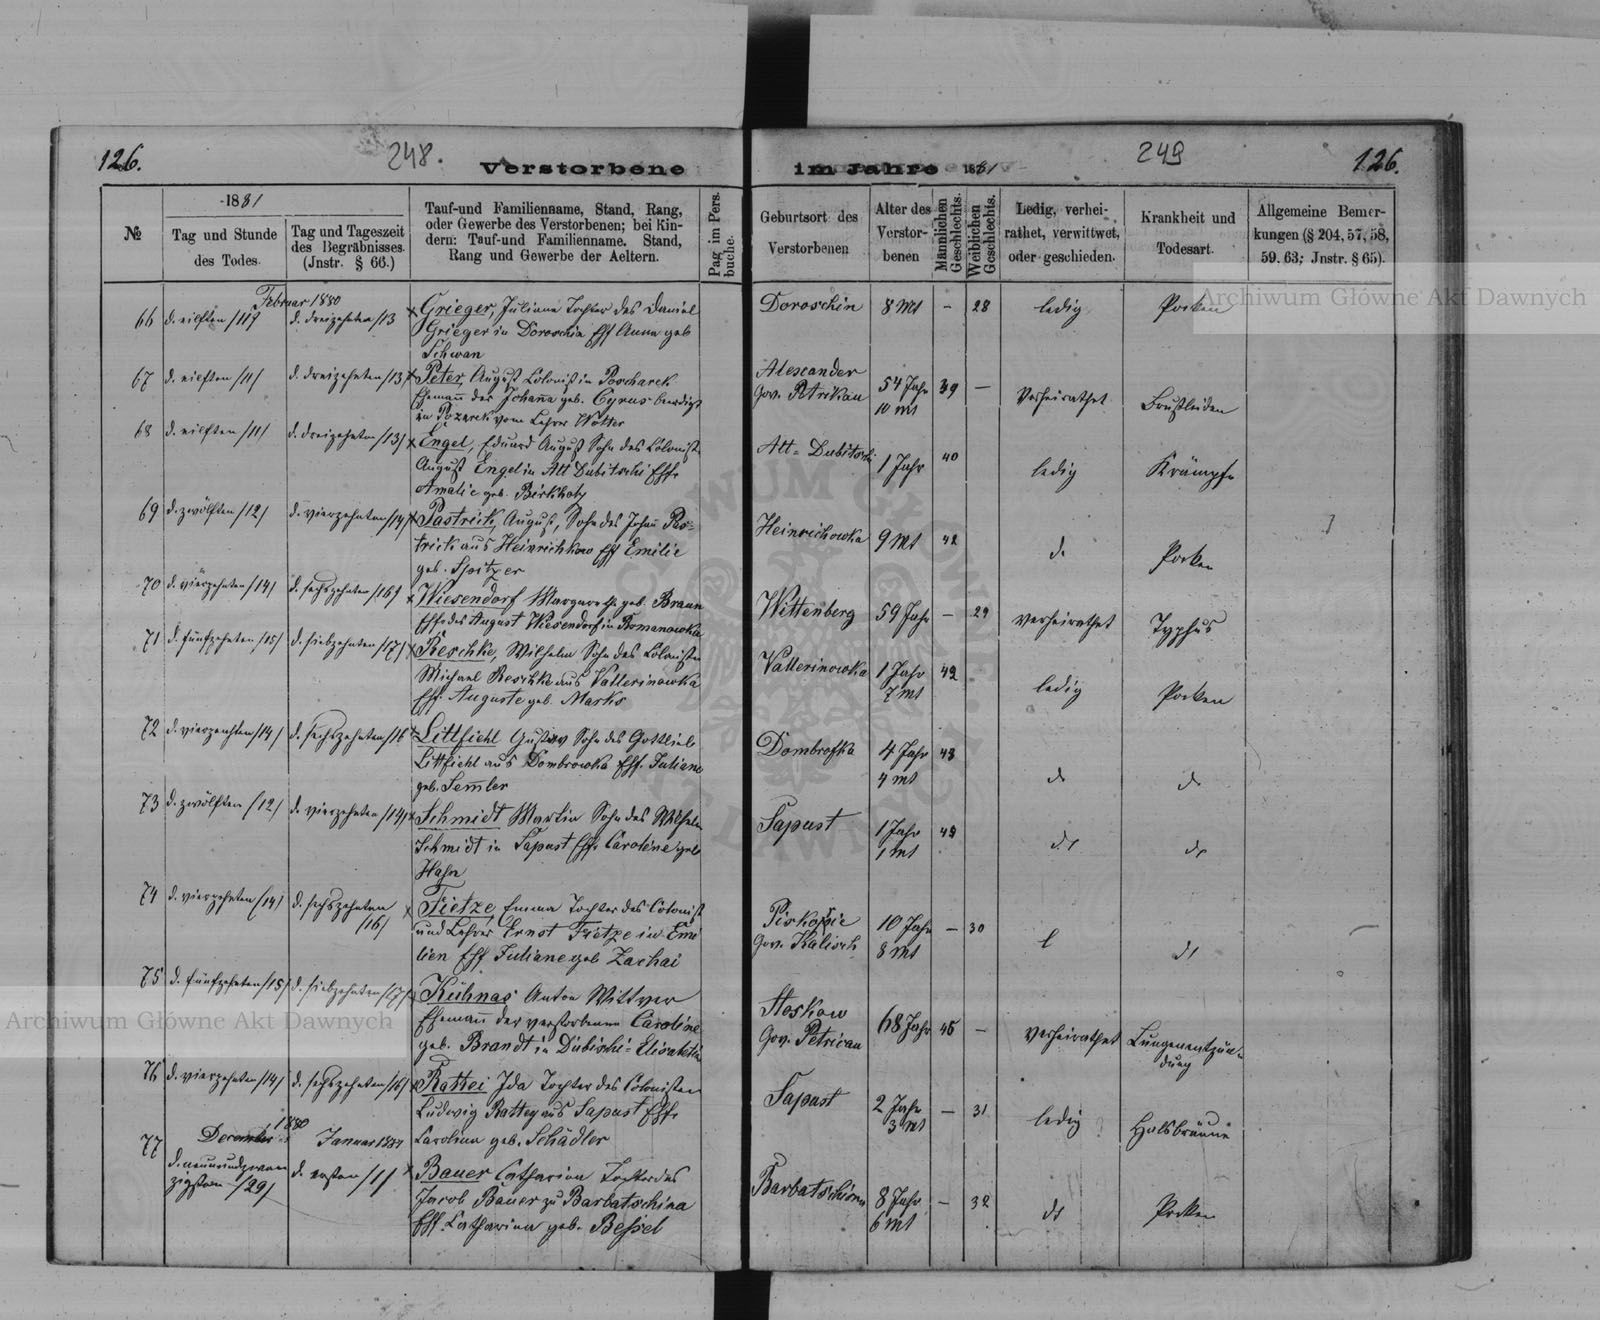 126.
248.
Verstorbene
im Jahre 1881
249
126.
№
1881
Tag und Stunde
des Todes.
Tag und Tageszeit
des Begräbnisses.
(Jnstr. § 66.)
Tauf-und Familienname, Stand, Rang,
oder Gewerbe des Verstorbenen; bei Kin-
dern: Tauf-und Familienname, Stand,
Rang und Gewerbe der Aeltern.
Pag. im Pers.
buche.
Geburtsort des
Verstorbenen
Alter des
Verstor-
benen
Männlichen
Geschlechts.
Weiblichen
Geschlechts.
Ledig, verhei-
rathet, verwittwet,
oder geschieden.
Krankheit und
Todesart.
Allgemeine Bemer-
kungen (§ 204, 57, 58,
59, 63; Jnstr. § 65).
Februar 1880
66 d. eilften /11/ d. dreizehnten /13 Grieger, Juliana Tochter des Daniel
Grieger in Doroschin Ehf Anna geb
Schwan
Doroschin 8 Mt – 28 ledig Pocken
67 d. eilften /11/ d. dreizehnten /13/ Peter, August Colonist in Poscharek
Ehemann der Johanna geb. Cyrus beerdigt
in Pozarek vom Lehrer Wötter
Alexander
Gov. Petrikau 54 Jahr 39 – Verheirathet Brustleiden
10 Mt
68 d. eilften /11/ d. dreizehnten /13/ Engel, Eduard August Sohn des Colonist
August Engel in Alt Dubitschi Ehf.
Amalie geb. Birkholz
Alt-Dubitschi 1 Jahr 40 ledig Krämpfe
69 d. zwölften /12/ d. vierzehnten /14/ Pastrick, August, Sohn des Johann Pas-
trick aus Heinrichkow Ehf Emilie
geb. Spitzer
Heinrichowka 9 Mt d. Pocken
70 d. vierzehnten /14/ d. sechszehnten /16/ Wiesendorf Margaretha geb. Braun
Ehf des August Wiesendorf in Romanowka
Wittenberg 59 Jahr – 29 verheirathet Typhus
71 d. fünfzehnten /15/ d. siebzehnten /17/ Reschke, Wilhelm Sohn des Colonisten
Michael Reschke aus Vallerinowka
Ehf. Auguste geb. Marks
Vallerinowka 1 Jahr
7 Mt ledig Pocken
72 d. vierzehnten /14/ d. sechszehnten /16 Littfiehl Gustav Sohn des Gottlieb
Littfiehl aus Dombrowka Ehf. Juliane
geb. Semler
Dombrofka 4 Jahr 43
4 Mt d. d.
73 d. zwölften /12/ d. vierzehnten /14/ Schmidt Martin Sohn des Wilhelm
Schmidt in Sapust Ehf. Caroline geb
Hahn
Sapust 1 Jahr
1 Mt do do
74 d. vierzehnten /14/ d. sechszehnten
/16/
Tietze, Emma Tochter des Colonist
und Lehrer Ernst Tietze in Emi
lien Ehf Juliane geb Zachai
Gov. Kalisch 10 Jahr – 30
8 Mt do
75 d. fünfzehnten /15/ d. siebzehnten /17/ Kühnas Anton Wittwer
Ehemann der verstorbenen Caroline
geb. Brandt in Dubischi-Elisabetin
Gov. Petricau 68 Jahr 45 – Verheirathet Lungenentzün-
dung
76 d. vierzehnten /14/ d. sechszehnten /16/ Rattei Ida Tochter des Colonisten
Ludwig Rattey aus Sapust Ehf.
Carolina geb. Schädler
Sapust 2 Jahr – 31 ledig Halsbräune
3 Mt
December 1880 Januar 1881
77 d. neunundzwan
zigsten /29/ d. ersten /1/ Bauer Catharina Tochter des
Jacob Bauer zu Barbatschina
Ehf. Catharina geb. Bessel
Barbatschina 8 Jahr – 32 do Pocken
6 Mt
Archiwum Główne Akt Dawnych
Archiwum Główne Akt Dawnych